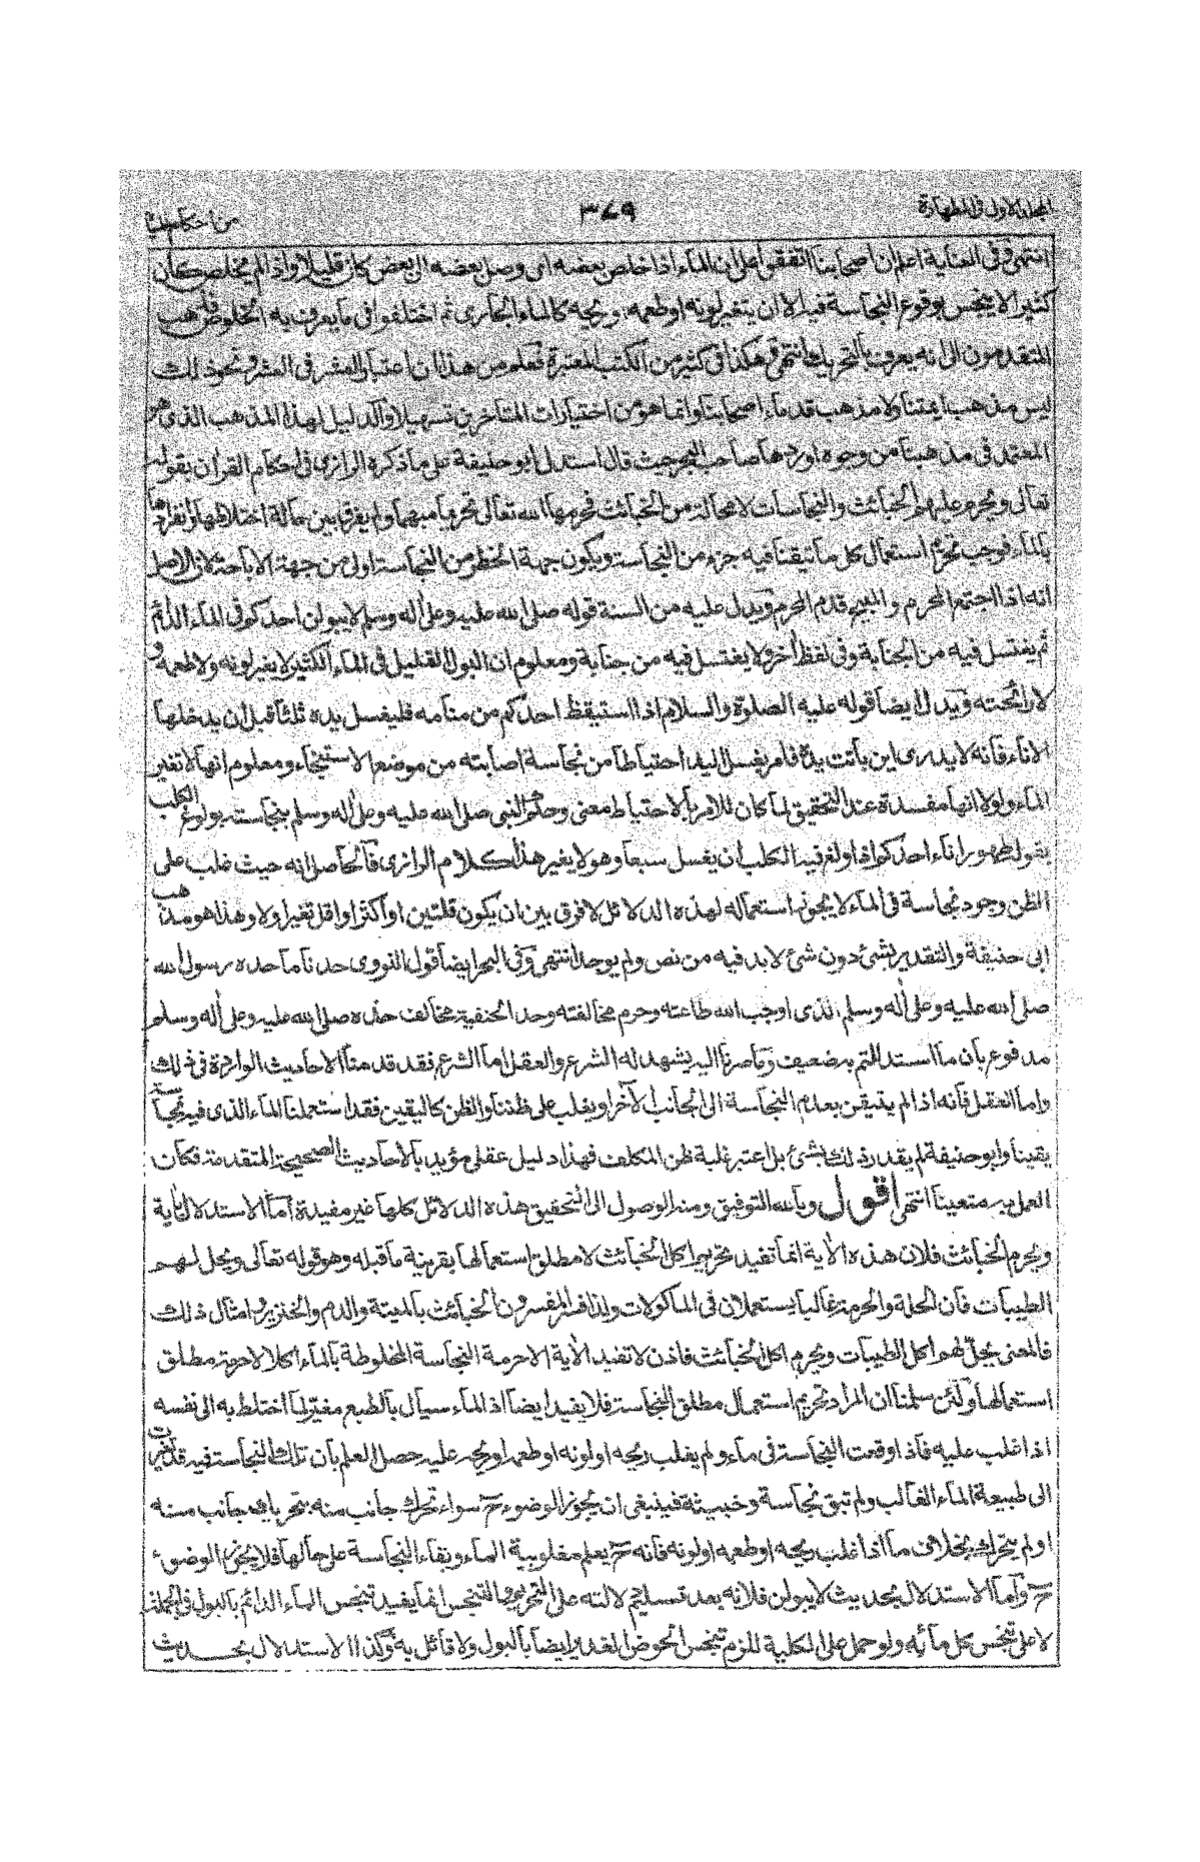 المجلد الاول فى الطهارة
٣٧٩
من احكام المياه
انتهى وفى العناية اعلم ان اصحابنا اتفقوا على ان الماء اذا خلص بعضه اى وصل بعضه الى بعض كان قليلا واذا لم يخلص كان
كثيرا لا ينجس بوقوع النجاسة فيه الا ان يتغير لونه او طعمه او ريحه كالماء الجارى ثم اختلفوا فى ما يعرف به الخلوص فذهب
المتقدمون الى انه يعرف بالتحريك انتهى وهكذا فى كثير من الكتب المعتبرة فعلم من هذا ان اعتبار العشر فى العشر ونحو ذلك
ليس مذهب ايمتنا ولا مذهب قدماء اصحابنا وانما هو من اختيارات المتاخرين تسهيلا والدليل لهذا المذهب الذى هو
المعتمد فى مذهبنا من وجوه اوردها صاحب البحر حيث قال استدل ابو حنيفة على ما ذكره الرازى فى احكام القرآن بقوله
تعالى ويحرم عليهم الخبائث والنجاسات لا محالة من الخبائث فحرمها الله تعالى تحريما مبهما ولم يفرق بين حالة اختلاطها وانفرادها
بالماء فوجب تحريم استعمال كل ما تيقنا فيه جزء من النجاسة ويكون جهة الحظر من النجاسة اولى من جهة الاباحة لان الاصل
انه اذا اجتمع المحرم والمبيح قدم المحرم ويدل عليه من السنة قوله صلى الله عليه وعلى آله وسلم لا يبولن احدكم فى الماء الدائم
ثم يغتسل فيه من الجنابة وفى لفظ آخر ولا يغتسل فيه من جنابة ومعلوم ان البول القليل فى الماء الكثير لا يغير لونه ولا طعمه و
لا رائحته ويدل ايضا قوله عليه الصلوة والسلام اذا استيقظ احدكم من منامه فليغسل يده ثلثا قبل ان يدخلها
الاناء فانه لا يدرى اين باتت يده فامر بغسل اليد احتياطا من نجاسة اصابته من موضع الاستنجاء ومعلوم انها لا تغير
الماء ولولا انها مفسدة عند التحقيق لما كان للامر بالاحتياط معنى وحكم النبى صلى الله عليه وعلى آله وسلم بنجاسته بولوغ الكلب
بقوله طهور اناء احدكم اذا ولغ فيه الكلب ان يغسل سبعا وهو لا يغير هذا كلام الرازى فالحاصل انه حيث غلب على
الظن وجود نجاسة فى الماء لا يجوز استعماله لهذه الدلائل لا فرق بين ان يكون قلتين او اكثر او اقل تغير او لا وهذا هو مذهب
ابى حنيفة والتقدير بشئ دون شئ لا بد فيه من نص ولم يوجد انتهى وفى البحر ايضا قول النووى حدنا ما حده رسول الله
صلى الله عليه وعلى آله وسلم الذى اوجب الله طاعته وحرم مخالفته وحد الحنفية مخالف حده صلى الله عليه وعلى آله وسلم
مدفوع بان ما استدللتم به ضعيف وما صرنا اليه يشهد له الشرع والعقل اما الشرع فقد قدمنا الاحاديث الواردة فى ذلك
واما العقل فانه اذا لم يتيقن بعدم النجاسة الى الجانب الآخر او يغلب على ظننا والظن كاليقين فقد استعملنا الماء الذى فيه نجاسة
يقينا وابو حنيفة لم يقدر ذلك بشئ بل اعتبر غلبة ظن المكلف فهذا دليل عقلى مؤيد بالاحاديث الصحيحة المتقدمة فكان
العمل به متعينا انتهى اقول وبالله التوفيق ومنه الوصول الى التحقيق هذه الدلائل كلها غير مفيدة اما الاستدلال باية
ويحرم الخبائث فلان هذه الآية انما تفيد تحريم اكل الخبائث لا مطلق استعمالها بقرينة ما قبله وهو قوله تعالى ويحل لهم
الطيبات فان الحلة والحرمة غالبا يستعملان فى الماكولات ولذا فسر المفسرون الخبائث بالميتة والدم والخنزير وامثال ذلك
فالمعنى يحل لهم اكل الطيبات ويحرم اكل الخبائث فاذن لا تفيد الآية الا حرمة النجاسة المخلوطة بالماء اكلا لا حرمة مطلق
استعمالها ولئن سلمنا ان المراد تحريم استعمال مطلق النجاسة فلا يفيد ايضا اذ الماء سيال بالطبع مغير لما اختلط به الى نفسه
اذا غلب عليه فاذا وقعت النجاسة فى ماء ولم يغلب ريحه او لونه او طعمه او ريحه عليه حصل العلم بان تلك النجاسة فيه قد تغيرت
الى طبيعة الماء الغالب ولم تبق نجاسة وخبيثة فينبغى ان يجوز الوضوء ح سواء تحرك جانب منه بتحريك جانب منه
او لم يتحرك بخلاف ما اذا غلب ريحه او طعمه او لونه فانه ح يعلم مغلوبية الماء وبقاء النجاسة على حالها فلا يجوز الوضوء
ح واما الاستدلال بحديث لا يبولن فلانه بعد تسليم دلالته على التحريم والتنجس انما يفيد تنجس الماء الدائم بالبول فى الجملة
لا على تنجس كل مائه ولو حمل على الكلية للزم تنجس الحوض الغدير ايضا بالبول ولا قائل به وكذا الاستدلال بحديث